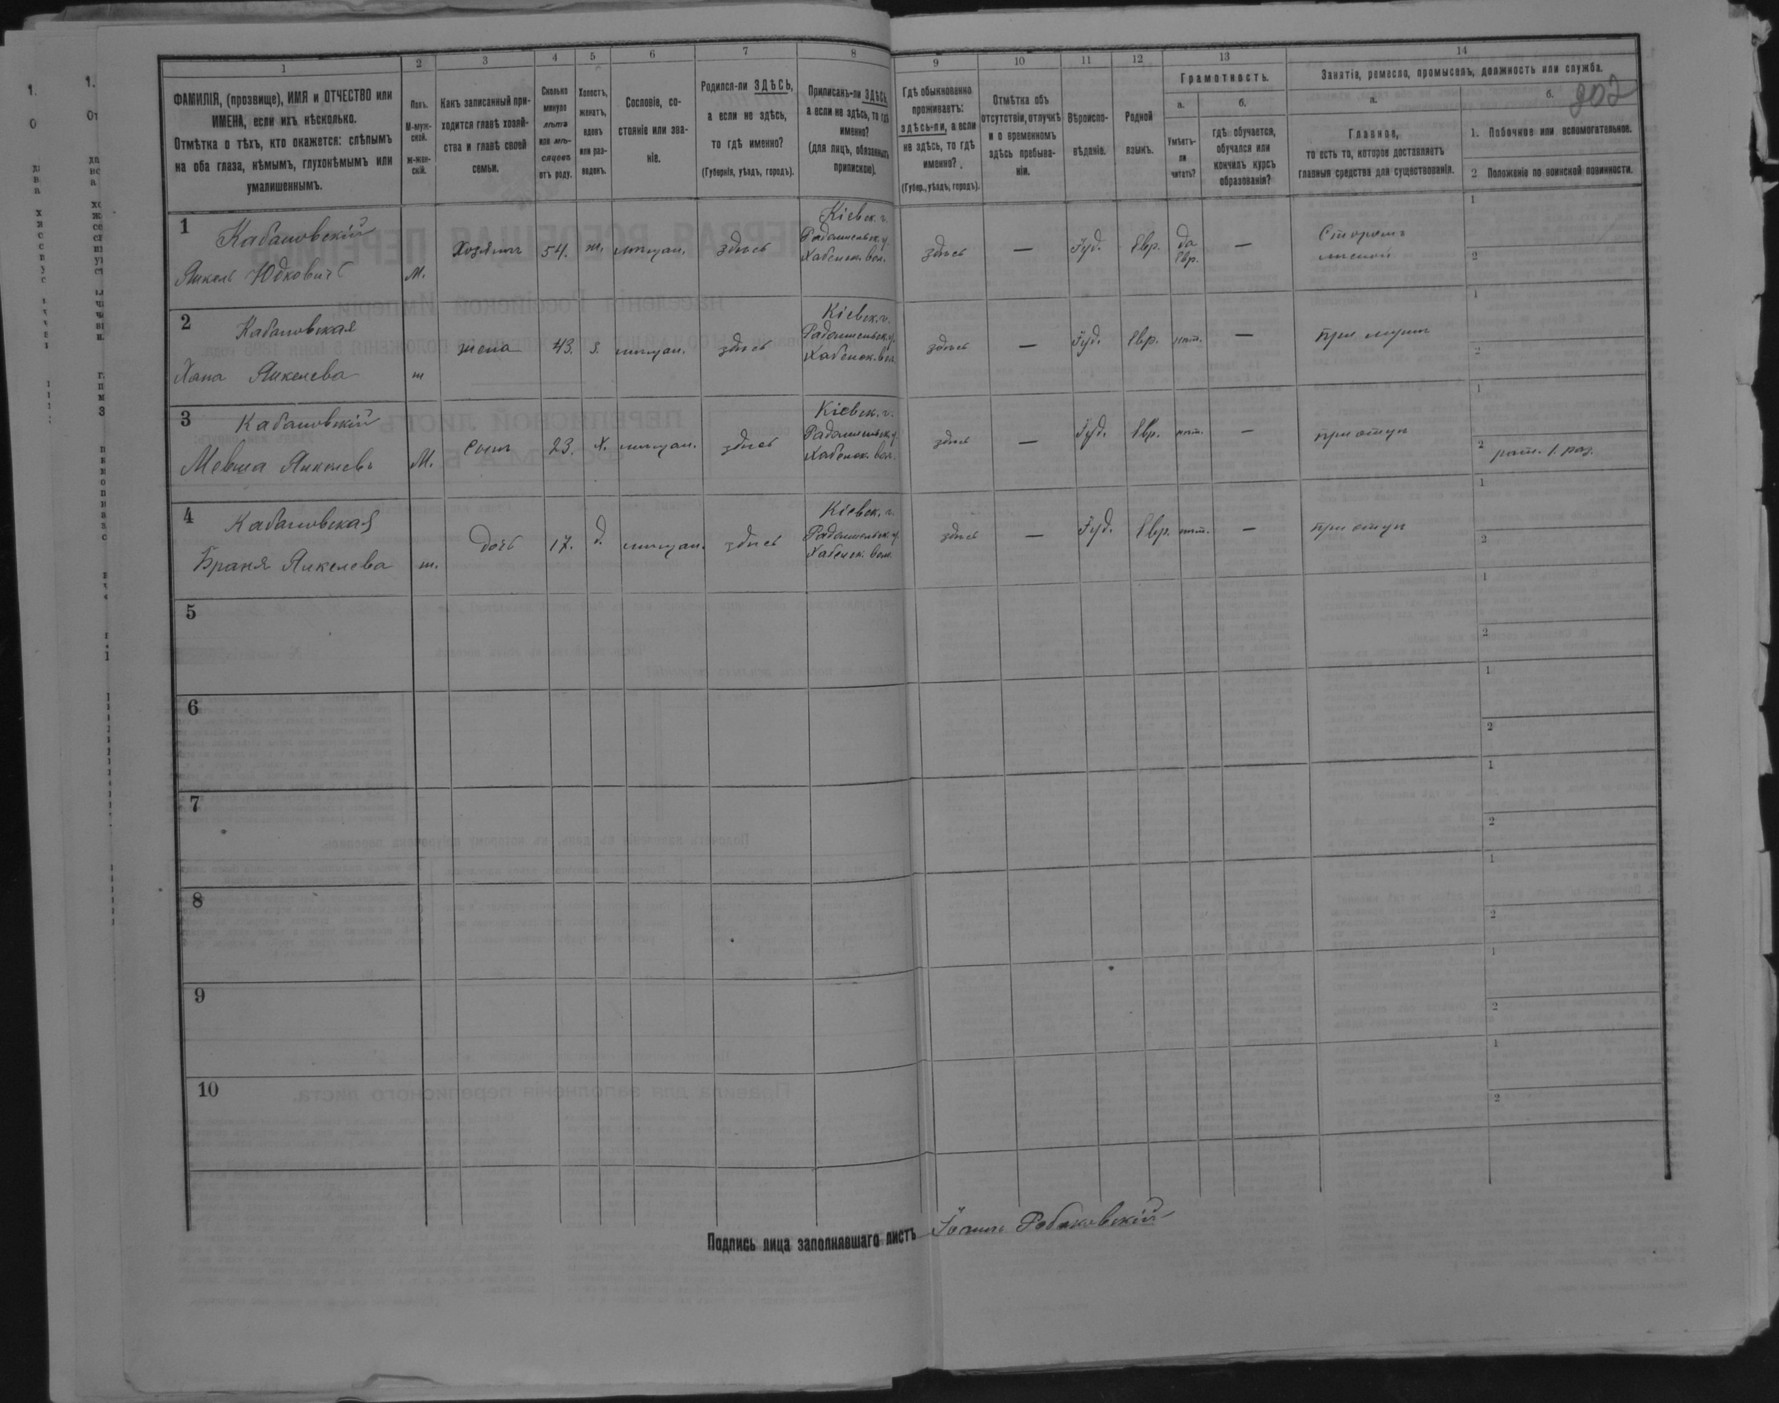 1 2 3 4 5 6 7 8 9 10 11 12 13 14
ФАМИЛІЯ, (прозвище), ИМЯ и ОТЧЕСТВО или
ИМЕНА, если ихъ нѣсколько.
Отмѣтка о тѣхъ, кто окажется: слѣпымъ
на оба глаза, нѣмымъ, глухонѣмымъ или
умалишеннымъ.
Полъ.
М-муж-
ской.
Ж-жен-
скій.
Какъ записанный при-
ходится главѣ хозяй-
ства и главѣ своей
семьи.
Сколько
минуло
лѣтъ
или мѣ-
сяцевъ
отъ роду.
Холостъ,
женатъ,
вдовъ
или раз-
веденъ.
Сословіе, со-
стояніе или зва-
ніе.
Родился-ли ЗДѢСЬ,
а если не здѣсь,
то гдѣ именно?
(Губернія, уѣздъ, городъ).
Приписанъ-ли ЗДѢСЬ,
а если не здѣсь, то гдѣ
именно?
(для лицъ, обязанныхъ
припискою).
Гдѣ обыкновенно
проживаетъ:
здѣсь-ли, а если
не здѣсь, то гдѣ
именно?
(Губер., уѣздъ, городъ).
Отмѣтка объ
отсутствіи, отлучкѣ
и о временномъ
здѣсь пребыва-
ніи.
Вѣроиспо-
вѣданіе.
Родной
языкъ.
Грамотность.
а.
Умѣетъ-
ли
читать?
б.
Гдѣ обучается,
обучался или
кончилъ курсъ
образованія?
Занятія, ремесло, промыселъ, должность или служба.
а.
Главное,
то есть то, которое доставляетъ
главныя средства для существованія.
б.
1. Побочное или вспомогательное.
2 Положеніе по воинской повинности.
1
Кабановскій
Янкель Юдковичъ
М. Хозяинъ 54. ж. мѣщан. здѣсь
Кіевск. г.
Радомысльск. у.
Хабенск. вол.
здѣсь — Іуд. Евр. да
Евр. —
Сторожъ
лѣсной
1
2
2
Кабановская
Хана Янкелева
ж жена 43. з. мѣщан. здѣсь
Кіевск. г.
Радомысльск. у.
Хабенск. вол.
здѣсь — Іуд. Евр. нѣт. — При мужѣ
1
2
3
Кабановскій
Янкелевъ
М. сынъ 23. х. мѣщан. здѣсь
Кіевск. г.
Радомысльск. у.
Хабенск. вол.
здѣсь — Іуд. Евр. нѣт. — при отцѣ
1
2 рат. 1 раз.
4
Кабановская
Браня Янкелева
ж. дочь 17. д. мѣщан. здѣсь
Кіевск. г.
Радомысльск. у.
Хабенск. вол.
здѣсь — Іуд. Евр. нѣт. — при отцѣ
1
2
5
1
2
6
1
2
7
1
2
8
1
2
9
1
2
10
1
2
Подпись лица заполнявшаго листъ